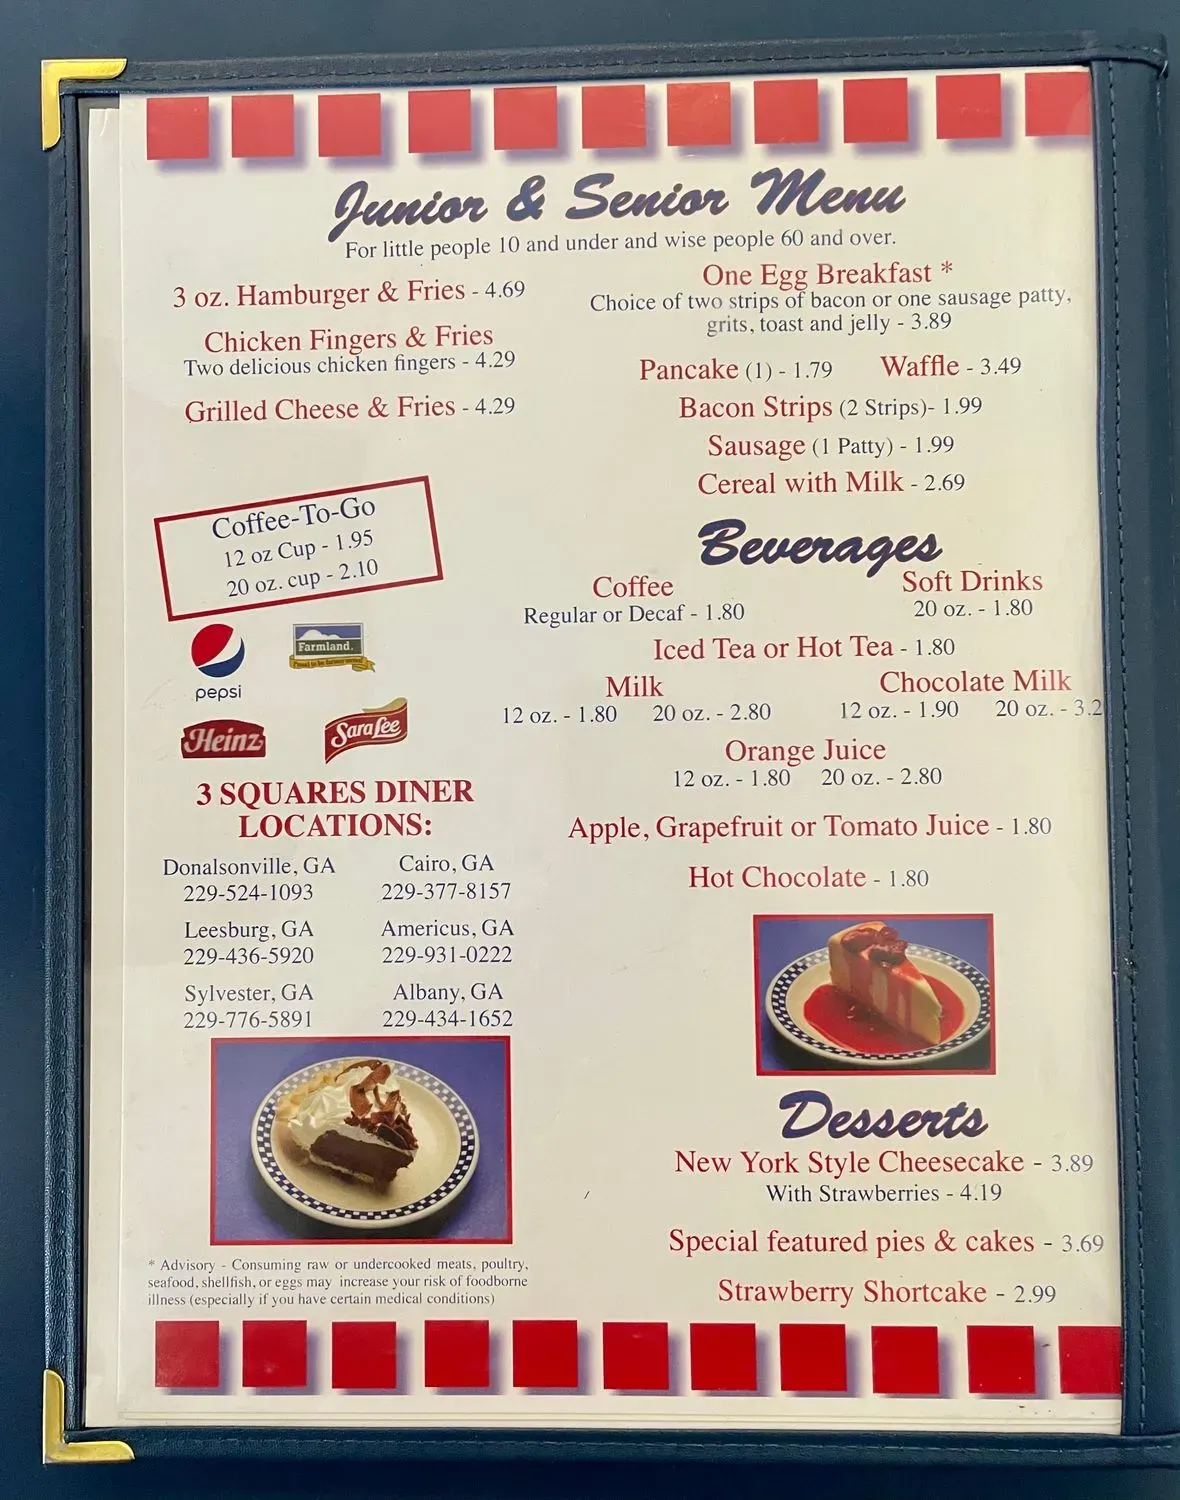 Junior & Senior Menu
For little people 10 and under and wise people 60 and over.
3 oz. Hamburger & Fries - 4.69
Chicken Fingers & Fries
Two delicious chicken fingers - 4.29
Grilled Cheese & Fries - 4.29
One Egg Breakfast *
Choice of two strips of bacon or one sausage patty,
grits, toast and jelly - 3.89
Pancake (1) - 1.79 Waffle - 3.49
Bacon Strips (2 Strips)- 1.99
Sausage (1 Patty) - 1.99
Cereal with Milk - 2.69
Coffee-To-Go
12 oz Cup - 1.95
20 oz. cup - 2.10
pepsi
Farmland.
Heinz
Sara Lee
Beverages
Coffee Soft Drinks
Regular or Decaf - 1.80 20 oz. - 1.80
Iced Tea or Hot Tea - 1.80
Milk Chocolate Milk
12 oz. - 1.80 20 oz. - 2.80 12 oz. - 1.90 20 oz. - 3.2
Orange Juice
12 oz. - 1.80 20 oz. - 2.80
Apple, Grapefruit or Tomato Juice - 1.80
Hot Chocolate - 1.80
3 SQUARES DINER
LOCATIONS:
Donalsonville, GA Cairo, GA
229-524-1093 229-377-8157
Leesburg, GA Americus, GA
229-436-5920 229-931-0222
Sylvester, GA Albany, GA
229-776-5891 229-434-1652
Desserts
New York Style Cheesecake - 3.89
With Strawberries - 4.19
Special featured pies & cakes - 3.69
Strawberry Shortcake - 2.99
* Advisory - Consuming raw or undercooked meats, poultry,
seafood, shellfish, or eggs may increase your risk of foodborne
illness (especially if you have certain medical conditions)